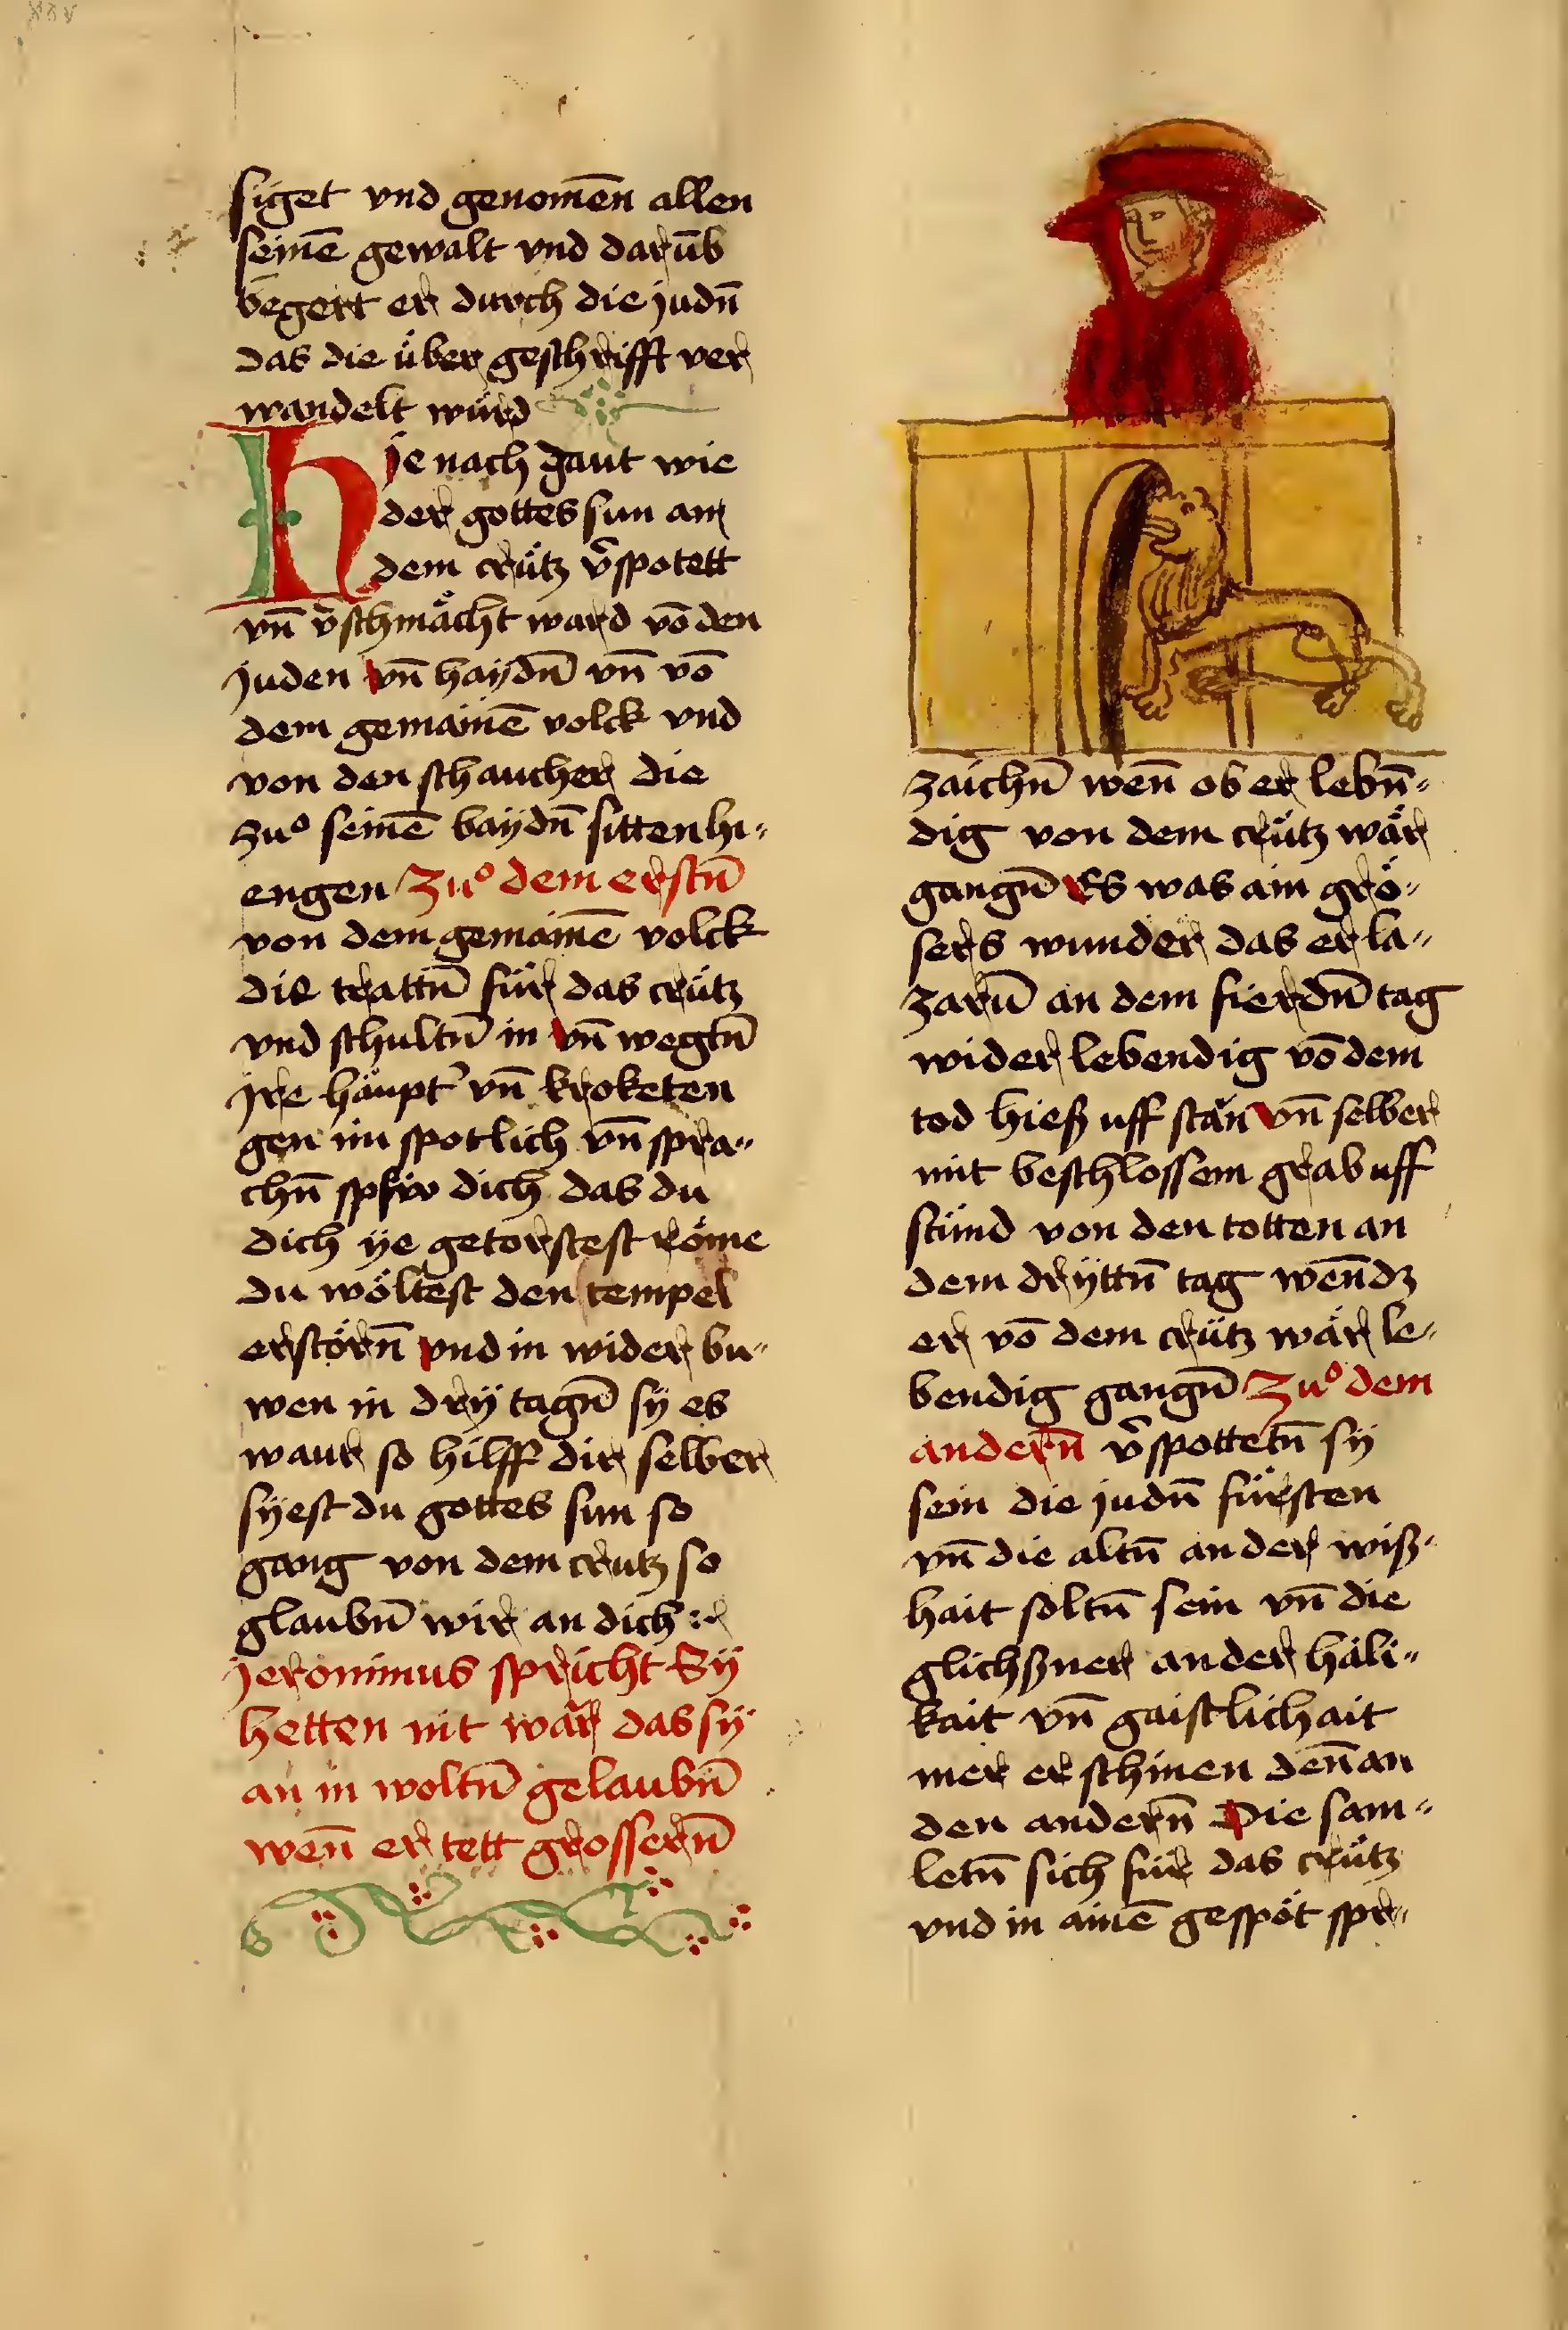 siget vnd genomēn allen
seinē gewalt vnd darūb
begert er durch die judn̄
das die über geschrifft ver
wandelt würd
Hie nach gaut wie
der gottes sun am
dem crütz v̄spotett
vn̄ v̄schmächt ward vō den
juden vn̄ haydn̄ vn̄ vō
dem gemainē volck vnd
von den schaucher die
zuͦ seinē baydn̄ sitten hi-
engen Zuͦ dem erstn̄
von dem gemainē volck
die trattn̄ für das crütz
vnd schultn̄ in vn̄ wegtn̄
jre häupt' vn̄ kroketen
gen im spotlich vn̄ spra-
chn̄ das du
dich ye getorstest röme
du wöltest den tempel
erstörn̄ vnd in wider bu-
wen in dry tagn̄ sy es
waur so hilff dir selber
syest du gottes sun so
gang von dem crutz so
glaubn̄ wir an dich
Jeronimus spricht Sy
hetten nit war das sy
an in woltn̄ gelaubn̄
wen̄ er tett grossern̄
zaichn̄ wen̄ ob er lebn̄-
dig von dem crütz wär
gangn̄ Es was ain grö-
sers wunder das er la-
zarū an dem fierdn̄ tag
wider lebendig vō dem
tod hieß uff stän vn̄ selber
mit beschlossem grab uff
stünd von den totten an
dem dryttn̄ tag wen̄ dz
er vō dem crütz wär le-
bendig gangn̄ Zuͦ dem
andern̄ v̄spottetn̄ sy
sein die judn̄ fürsten
vn̄ die altn̄ an der wiß-
hait soltn̄ sein vn̄ die
glichßner an der häli-
kait vn̄ gaistlichait
mer erschinen den̄ an
den andern̄ Die sam-
letn̄ sich für das crütz
vnd in ainē gespöt spr-